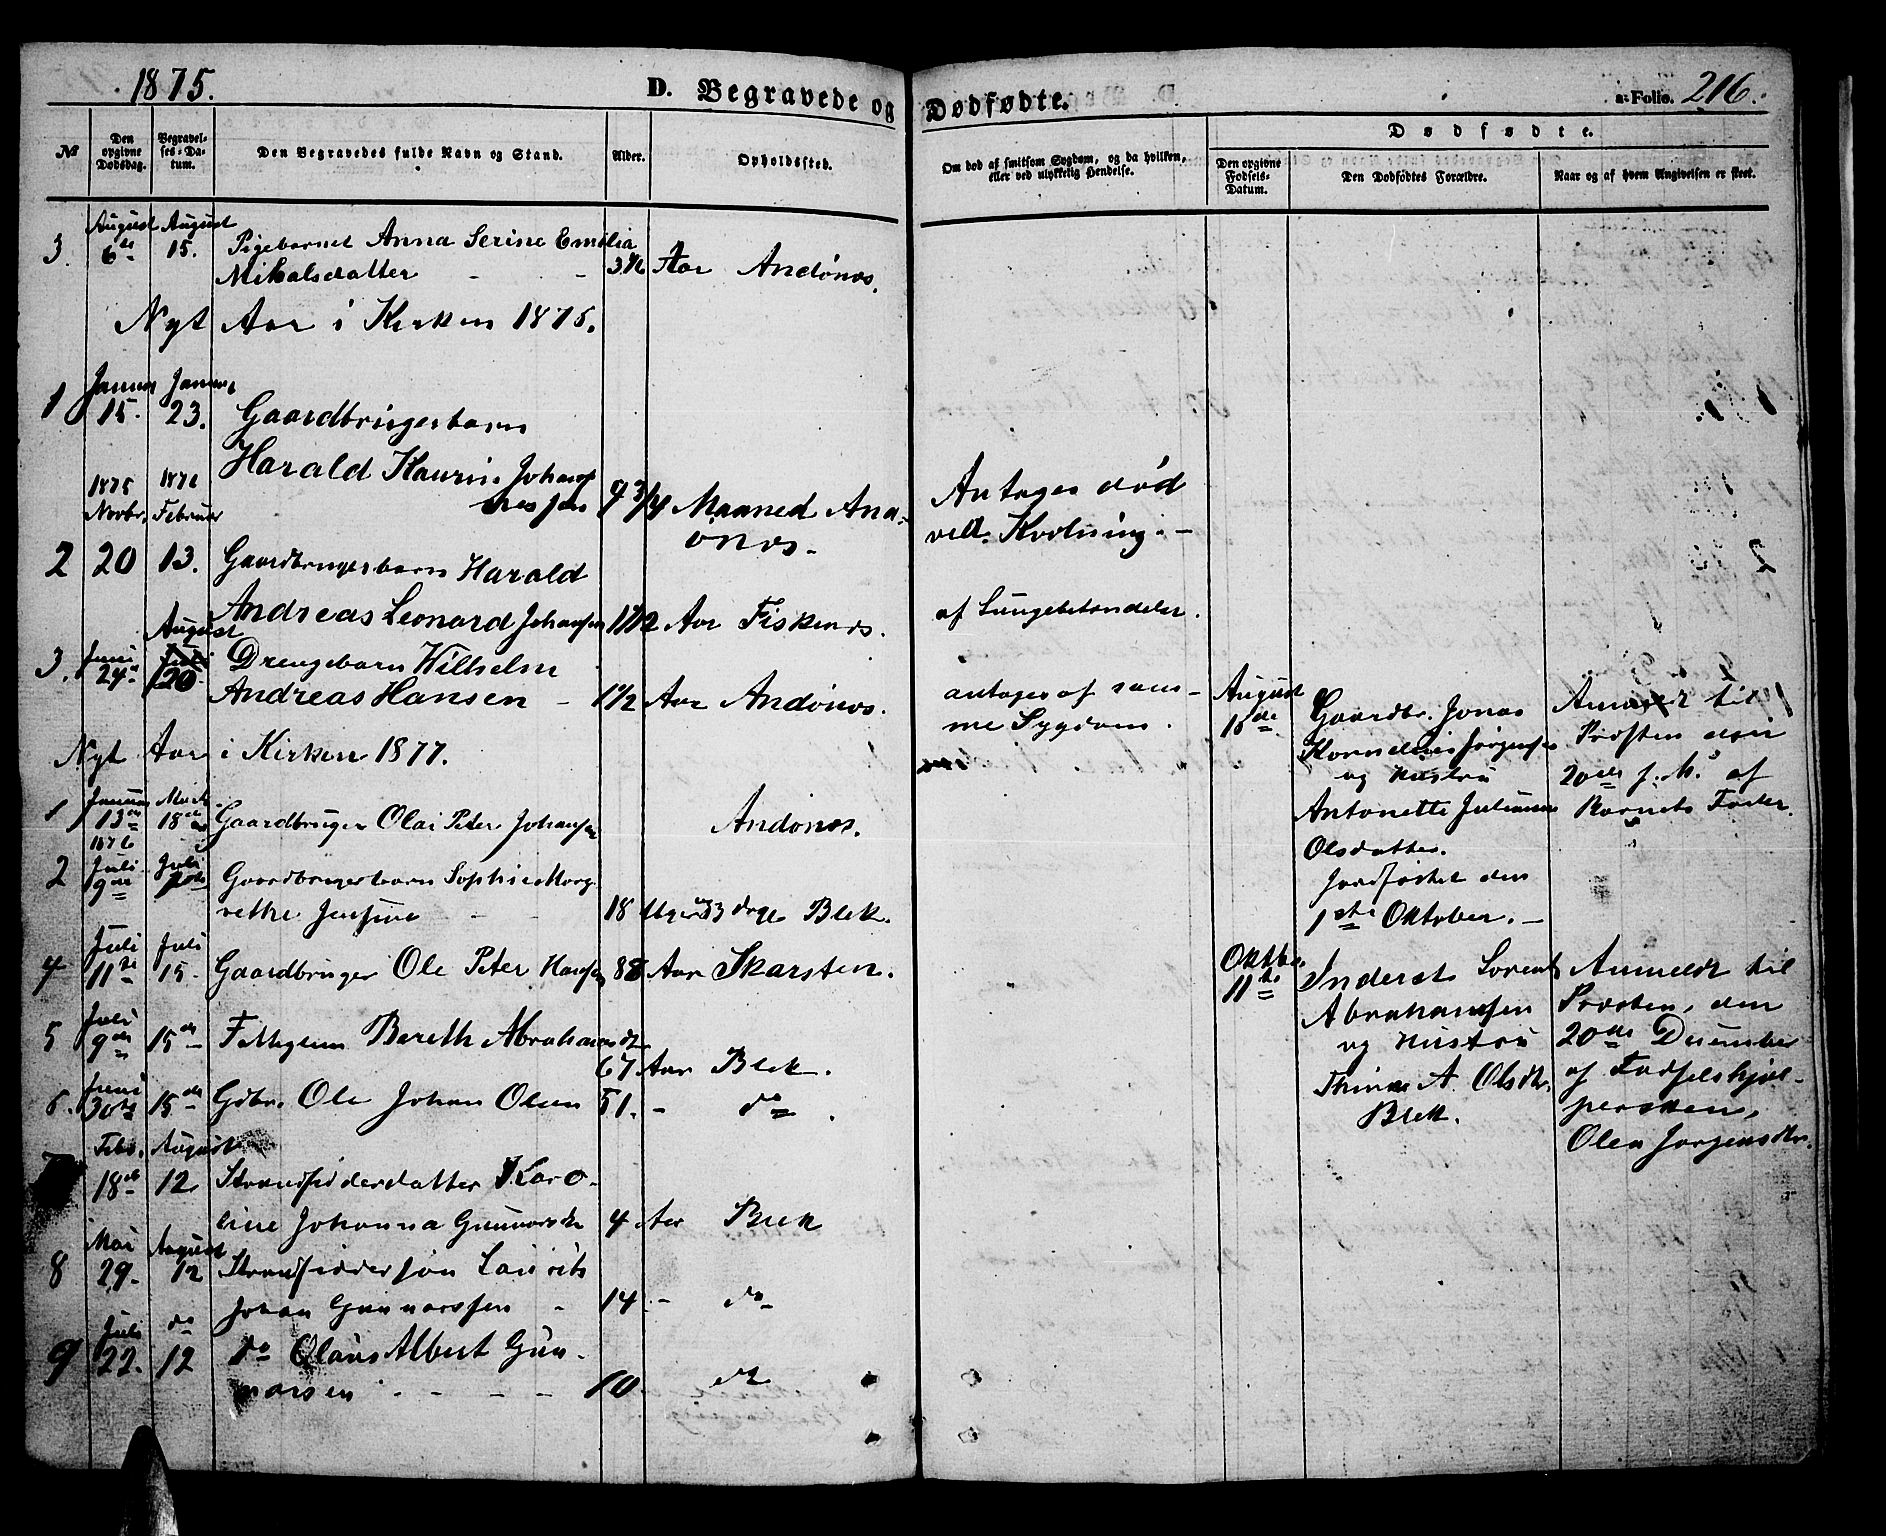 1875.
D. Begravede og Dødfødte.
a: Folio. 216.
№
Den opgivne Dødsdag.
Begravelses-Datum.
Den Begravedes fulde Navn og Stand.
Alder.
Opholdssted.
Om død af smitsom Sygdom, og da hvilken, eller ved ulykkelig Hendelse.
Dødfødte.
Den opgivne Fødsels-Datum.
Den Dødfødtes Forældre.
Naar og af hvem Angivelsen er skeet.
August August
3. 6te 15. Pigebarnet Anna Serine Emilia
Mikalsdatter - - Aar Andönæs.
Nyt Aar i Kirken 1875.
Januar Januar
1 15. 23. Gaardbrugerbarn
Harald Kaurin Johan-
nessen 9 3/4 Maaned And-
önæs.
Antages død
ved Kvælning. -
1875 1876
Novbr. Februar
2 20 13. Gaardbrugerbarn Harald
Andreas Leonard Johansen 1 1/12 Aar Fiskenæs.
af Lungebetændelse.
August
3. Juni 24de Juli 20 Drengebarn Wilhelm
Andreas Hansen - 1 1/2 Aar Andönæs.
antages af sam-
me Sygdom.
Nyt Aar i Kirken 1877.
Januar Marts
1 13de 18de Gaardbruger Olai Peter Johansen Andönæs.
1876
2 Juli 9de Juli Gaardbrugerbarn Sophie Marg-
rethe Jensine - - 18 Uger og 3 dage Blek.
Juli Juli
4 11te 15. Gaardbruger Ole Peter Hansen 88 Aar Skarsten.
Juli
5 9de 15de Fattiglem Bereth Abrahamsdtr
67 Aar Blek.
Juni
6. 30te 15de Gdbr. Ole Johan Olsen 51. - do.
Febr. August
18de 12. Strandsidderdatter Karo-
line Johanna Gunnarsdtr 4 Aar Blek
Mai August
8 29. 12 Strandsiddersön Laurits
Johan Gunnarssen - 14 - do
Juli do
9 22. 12 do Olaus Albert Gun-
narsen - - - - 10 do
August
18de
Gaardbr. Jonas
Kornelius Jørgensen
og Hustru
Antonette Julianna
Olsdatter.
Jordfæstet den
1ste Oktober. -
Anmeldt til
Præsten den
20de f. M. af
Barnets Fader.
Oktbr.
11te
Inderst Lorents
Abrahamsen
og Hustru
Thina A. Olsdtr.
Blek.
Anmeldt til
Præsten, den
20de December
af Fødselshjæl-
persken,
Olea Jørgensdtr.